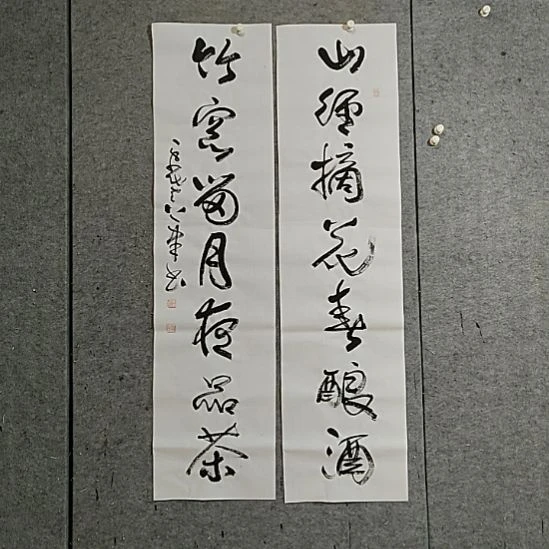 山径摘花春酿酒
竹窗留月夜品茶